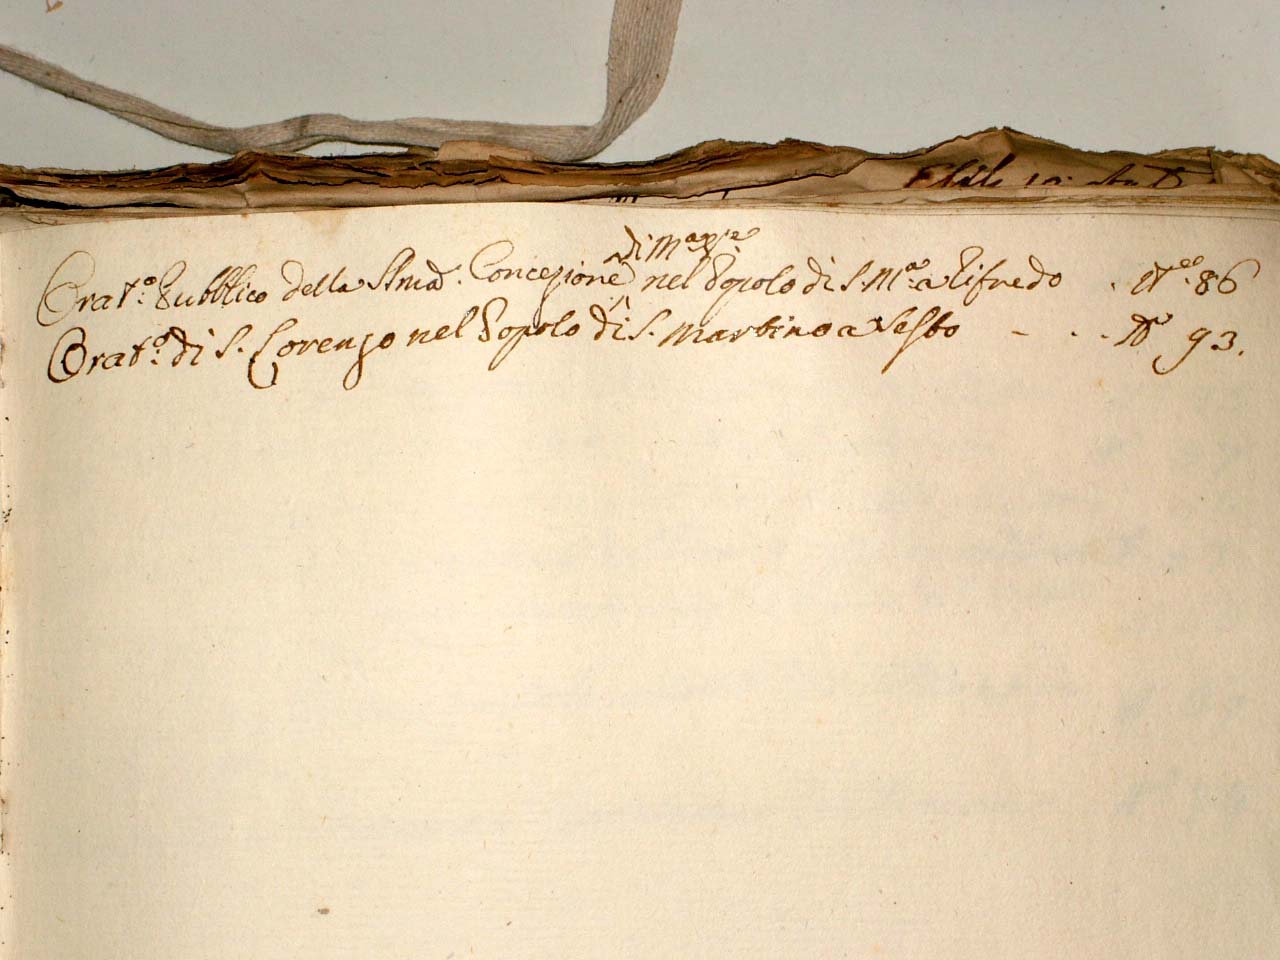 di M.a V.e
Orat.o Pubblico della SS.ma Concezione nel Popolo di S. M.a a Cifredo . N.o 86
Orat.o di S. Lorenzo nel Popolo di S. Martino a Sesto - . . N.o 93.